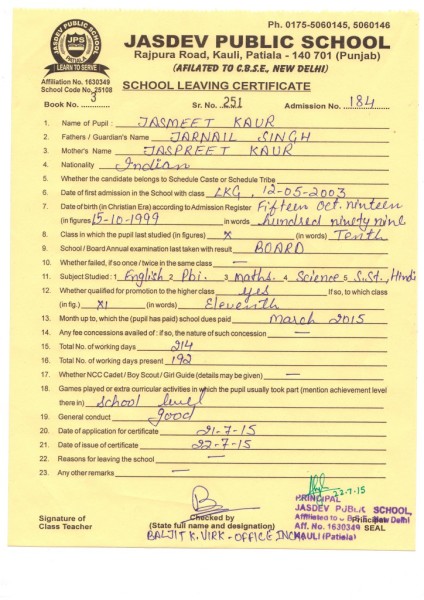 JASDEV PUBLIC SCHOOL
JPS
PATIALA
LEARN TO SERVE
Ph. 0175-5060145, 5060146
JASDEV PUBLIC SCHOOL
Rajpura Road, Kauli, Patiala - 140 701 (Punjab)
(AFILATED TO C.B.S.E, NEW DELHI)
Affiliation No. 1630349
School Code No. 25108
SCHOOL LEAVING CERTIFICATE
Book No. 3 Sr. No. 251 Admission No. 184
1. Name of Pupil : JASMEET KAUR
2. Fathers / Guardian's Name JARNAIL SINGH
3. Mother's Name JASPREET KAUR
4. Nationality Indian
5. Whether the candidate belongs to Schedule Caste or Schedule Tribe
6. Date of first admission in the School with class LKG, 12-05-2003
7. Date of birth (in Christian Era) according to Admission Register Fifteen Oct. ninteen
(in figures) 15-10-1999 in words hundred ninety nine
8. Class in which the pupil last studied (in figures) X (in words) Tenth
9. School / Board Annual examination last taken with result BOARD
10. Whether failed, if so once / twice in the same class —
11. Subject Studied : 1 English 2 Pbi. 3 maths. 4 Science 5 S.St., Hindi
12. Whether qualified for promotion to the higher class yes If so, to which class
(in fig.) XI (in words) Eleventh
13. Month up to, which the (pupil has paid) school dues paid March 2015
14. Any fee concessions availed of : if so, the nature of such concession —
15. Total No. of working days 214
16. Total No. of working days present 192
17. Whether NCC Cadet / Boy Scout / Girl Guide (details may be given) —
18. Games played or extra curricular activities in which the pupil usually took part (mention achievement level
there in) School level
19. General conduct good
20. Date of application for certificate 21-7-15
21. Date of issue of certificate 22-7-15
22. Reasons for leaving the school —
23. Any other remarks —
22-7-15
PRINCIPAL
JASDEV PUBLIC SCHOOL,
Affiliated to C.B.S.E. New Delhi
Aff. No. 1630349 SEAL
KAULI (Patiala)
Signature of
Class Teacher
Checked by
(State full name and designation)
BALJIT K. VIRK - OFFICE INCH
Principal